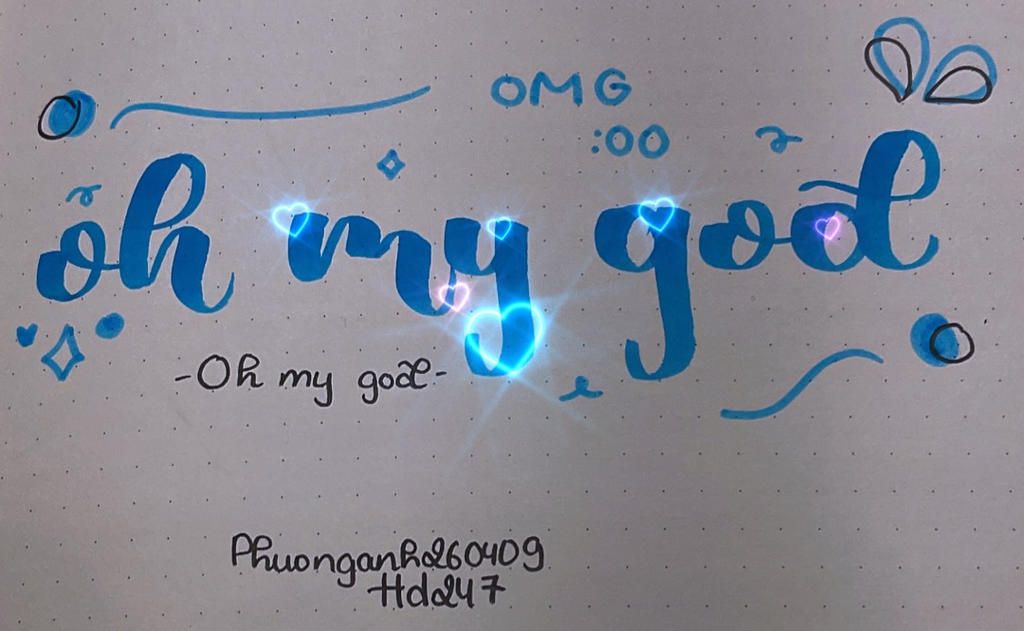 OMG
:OO
oh my god
-Oh my god-
Phuonganh260409
Hd247